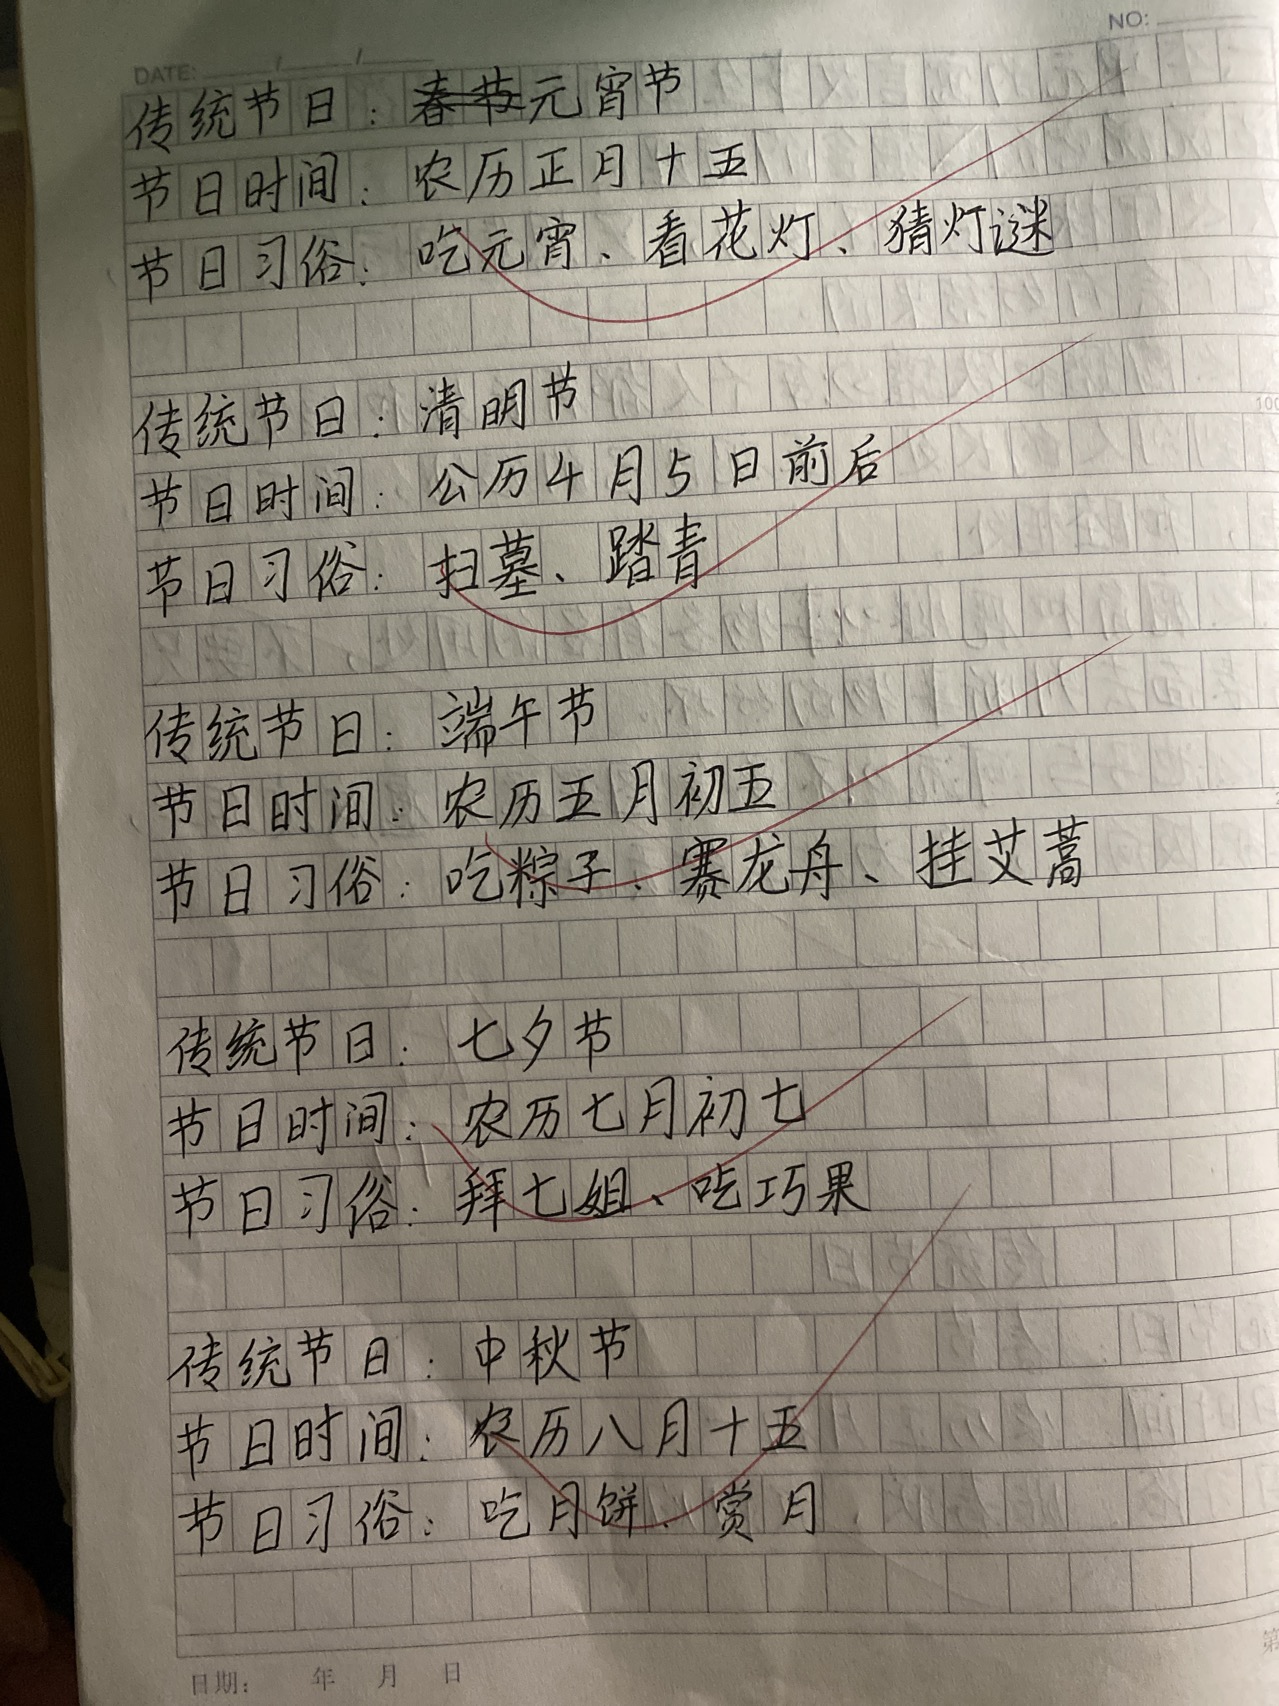 NO:
DATE: / /
传统节日：春节元宵节
节日时间：农历正月十五
节日习俗：吃元宵、看花灯、猜灯谜
传统节日：清明节
100
节日时间：公历4月5日前后
节日习俗：扫墓、踏青
传统节日：端午节
节日时间：农历五月初五
节日习俗：吃粽子、赛龙舟、挂艾蒿
传统节日：七夕节
节日时间：农历七月初七
节日习俗：拜七姐、吃巧果
传统节日：中秋节
节日时间：农历八月十五
节日习俗：吃月饼、赏月
第
日期： 年 月 日